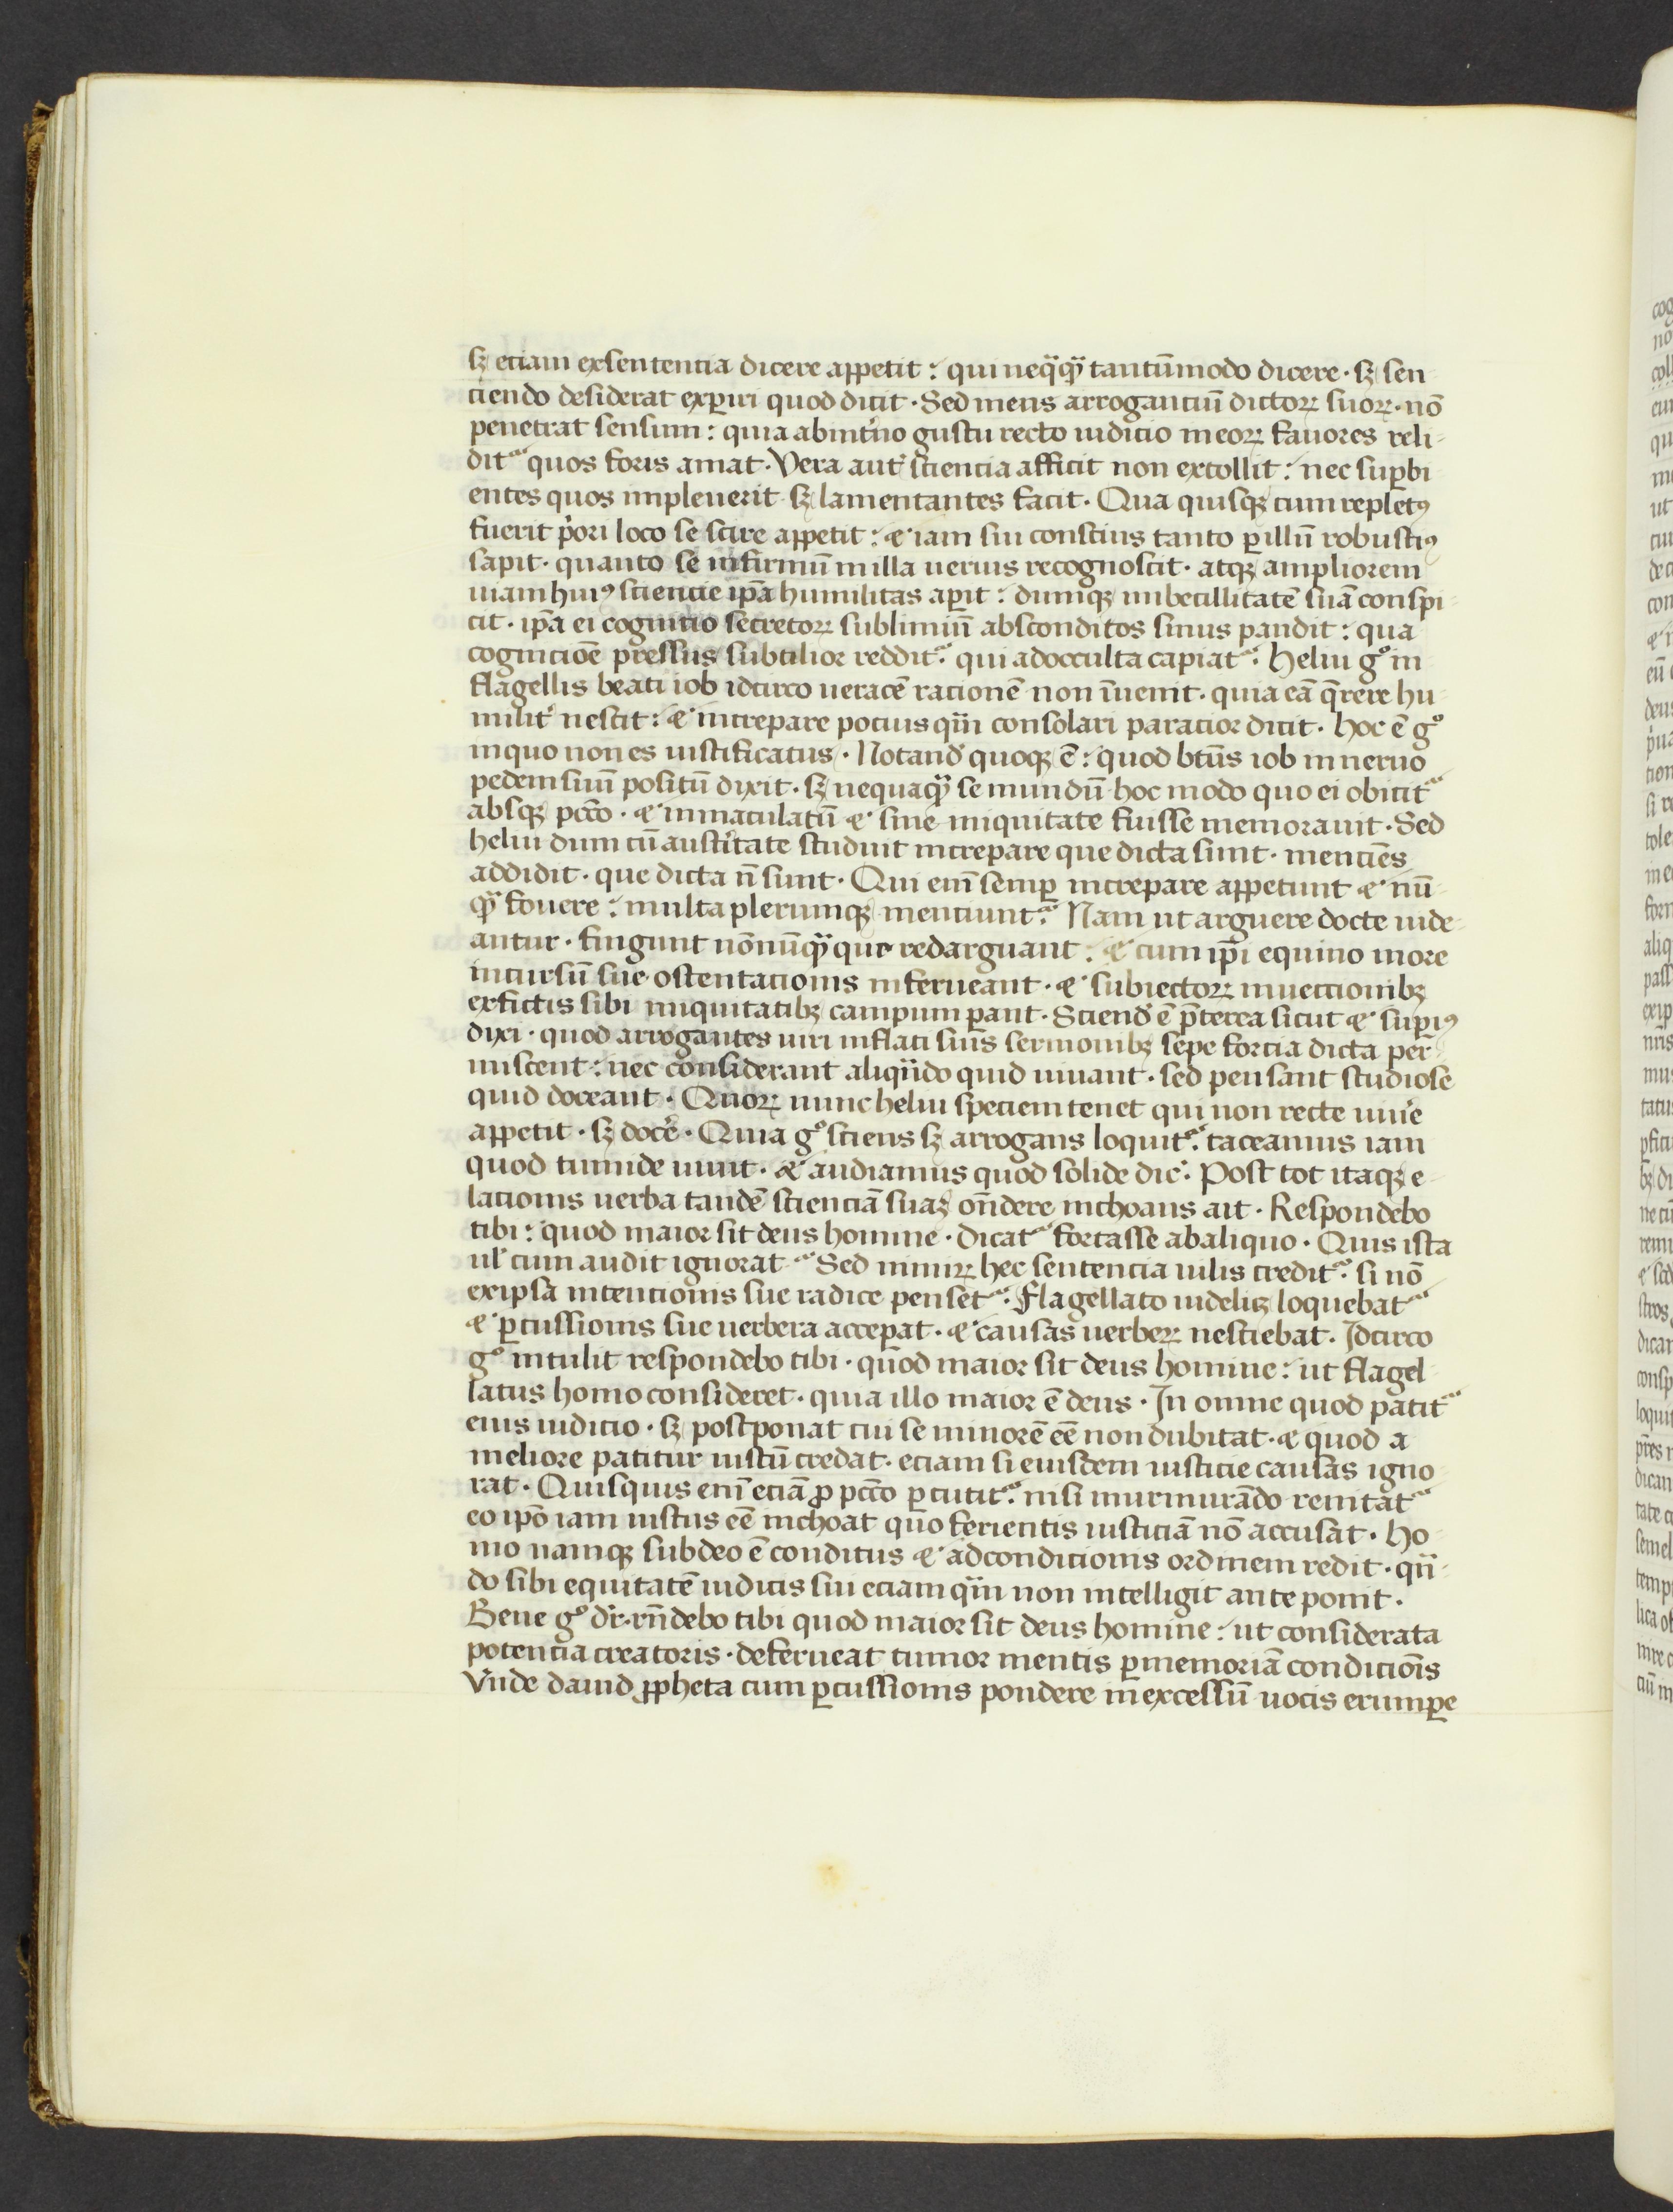 sꝫ eciam exsentencia dicere appetit : qui neqͣqͣꝫ tantūmodo dicere · sꝫ sen
ciendo desiderat exꝑiri quod dicit · Sed mens arrogancium̄ dictoꝝ suoꝝ · nō
penetrat sensum : quia abint̉no gustu recto iudicio meoꝝ fauores reli
dit᷑ quos foris amat · Vera aut̉ sciencia afficit non extollit : nec suꝑbi
entes quos impleuerit sꝫ lamentantes facit · Qua quisqꝫ cum repletꝰ
fuerit p̉ori loco se scire appetit : ⁊ iam sui conscius tanto ꝑ illū robustiꝰ
sapit · quanto se infirmū in illa uerius recognoscit · atqꝫ ampliorem
uiam huiꝰ sciencie ip̄a humilitas aꝑit : dumqꝫ imbecillitatē suā conspi
cit · ip̄a ei cognitio secretoꝝ sublimiū absconditos sinus pandit : qua
cognicioē pressus subtilior reddit᷑ · qui adocculta capiat᷑ · Heliu gͦ in
flagellis beati iob idcirco ueracē racionē non īuenit · quia eā q̄rere hu
milit̉ nescit : ⁊ increpare pocius qͣm consolari paracior dicit · hoc ē gͦ
inquo non es iustificatus · Notand̉ quoqꝫ ē : quod btūs iob in neruo
pedem suū positū dixit · sꝫ nequaqͣꝫ se mundū hoc modo quo ei obicit᷑
absqꝫ pcc̄o · ⁊ inmaculatū ⁊ sine iniquitate fuisse memorauit · Sed
heliu dum cū aust̉itate studuit increpare que dicta sunt · menciēs
addidit · que dicta n̄ sunt · Qui enī semꝑ increpare appetunt ⁊ nū
qͣꝫ fouere : multa plerumqꝫ menciunt᷑ · Nam ut arguere docte uide
antur · fingunt nōnūqͣꝫ que redarguant : ⁊ cum ip̄i equino more
incursū sue ostentacionis inferueant · ⁊ subiectoꝝ inuectionibꝫ
exfictis sibi iniquitatibꝫ campum ꝑant · Sciend̉ ē p̄terea sicut ⁊ suꝑiꝰ
dixi · quod arrogantes uiri inflati suis sermonibꝫ sepe forcia dicta per
miscent : nec considerant aliqͣndo quid uiuant · sed pensant studiose
quid doceant · Quoꝝ nunc heliu speciem tenet qui non recte uiủe
appetit · sꝫ doc̉e · Quia gͦ sciens sꝫ arrogans loquit᷑ · taceamus iam
quod tumide uiuit · ⁊ audiamus quod solide dic̉ · Post tot itaqꝫ e
lacionis uerba tandē scienciā suaꝫ on̄dere inchoans ait · Respondebo
tibi : quod maior sit deus homine · Dicat᷑ fortasse abaliquo · Quis ista
ul̉ cum audit ignorat ᷑ Sed nimiꝝ hec sentencia uilis credit᷑ · si nō
exipsa intencionis sue radice penset᷑ · Flagellato uideliꝫ loquebat᷑
⁊ ꝑcussionis sue uerbera acceꝑat · ⁊ causas uerbeꝝ nesciebat · Idcirco
gͦ intulit respondebo tibi · quod maior sit deus homine : ut flagel
latus homo consideret · quia illo maior ē deus · In omne quod patit᷑
eius iudicio · sꝫ postponat cui se minorē eē non dubitat · ⁊ quod a
meliore patitur iustū credat · eciam si eiusdem iusticie causas igno
rat · Quisquis enī eciā ꝓ pcc̄o ꝑcutit᷑ · nisi murmurādo renitat᷑
eo ipō iam iustus eē inchoat quo ferientis iusticiā nō accusat · Ho
mo namqꝫ subdeo ē conditus ⁊ adconditionis ordinem redit · qͣn
do sibi equitatē iudicis sui eciam qͣm non intelligit ante ponit ·
Bene gͦ dr̄ · rn̄debo tibi quod maior sit deus homine : ut considerata
potencia creatoris · deferueat tumor mentis ꝑmemoriā condicioīs
Vnde dauid ꝓpheta cum ꝑcussionis pondere in excessū uocis erumꝑe